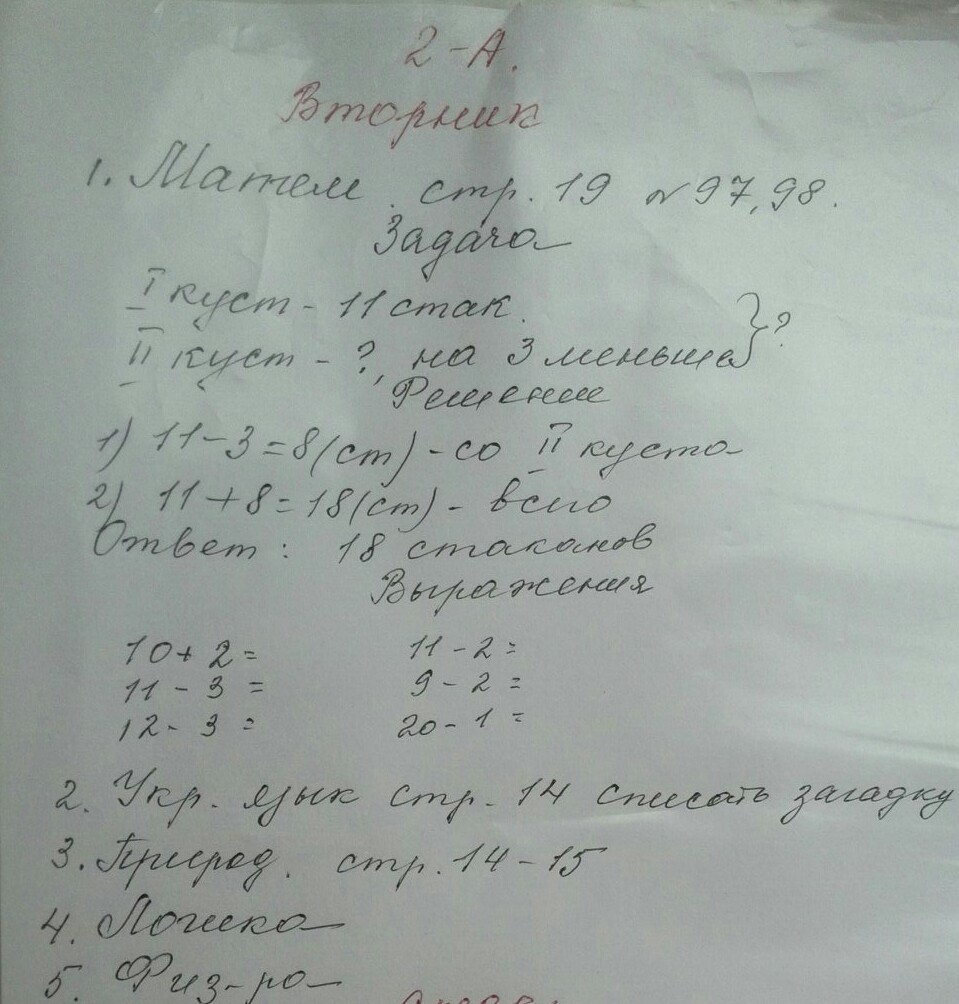 2-А.
Вторник
1. Матем. стр. 19 № 97, 98.
Задача
I куст - 11 стак.
II куст - ?, на 3 меньше } ?
Решение
1) 11 - 3 = 8 (ст) - со II куста
2) 11 + 8 = 18 (ст) - всего
Ответ: 18 стаканов
Выражения
10 + 2 = 11 - 2 =
11 - 3 = 9 - 2 =
12 - 3 = 20 - 1 =
2. Укр. язык стр. 14 списать загадку
3. Природ. стр. 14-15
4. Логика
5. Физ-ра